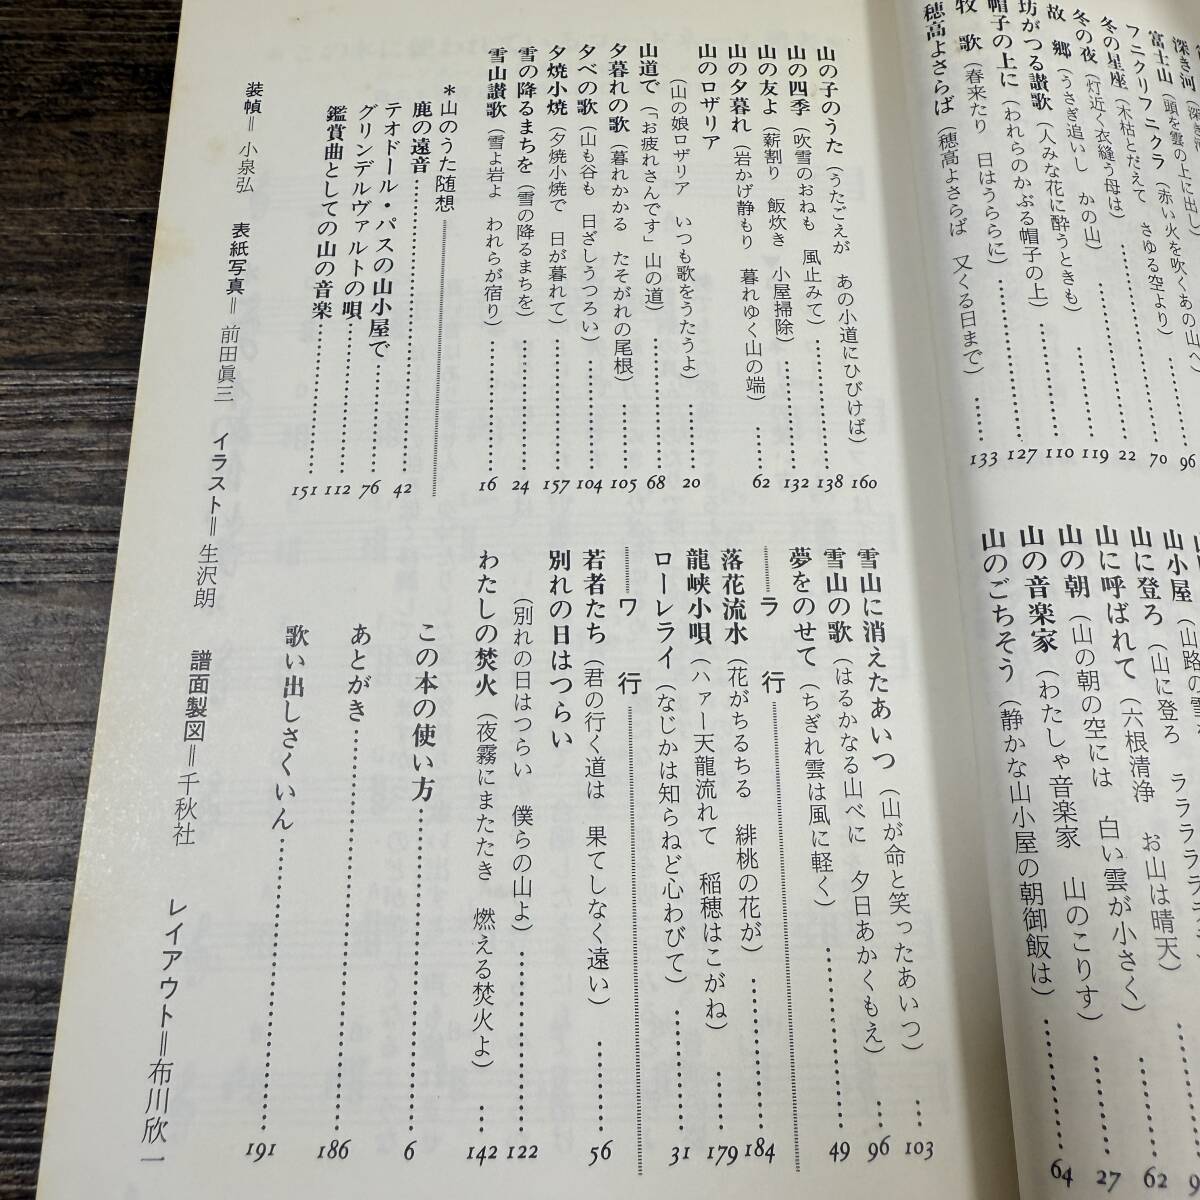 深き河（深
富士山（頭を雲の上に出し）
フニクリフニクラ（赤い火を吹くあの山へ）
冬の星座（木枯とだえて　さゆる空より）……96
冬の夜（灯近く衣縫う母は）……70
故　郷（うさぎ追いし　かの山）……22
坊がつる讃歌（人みな花に酔うときも）……119
帽子の上に（われらのかぶる帽子の上）……110
牧　歌（春来たり　日はうららに）……127
穂高よさらば（穂高よさらば　又くる日まで）……133
山小屋（山路の雪
山に登ろ（山に登ろ　ララララ
山に呼ばれて（六根清浄　お山は晴天）
山の朝（山の朝の空には　白い雲が小さく）……62
山の音楽家（わたしゃ音楽家　山のこりす）……27
山のごちそう（静かな山小屋の朝御飯は）……64
山の子のうた（うたごえが　あの小道にひびけば）……160
山の四季（吹雪のおねも　風止みて）……138
山の友よ（薪割り　飯炊き　小屋掃除）……132
山の夕暮れ（岩かげ静もり　暮れゆく山の端）……62
山のロザリア
（山の娘ロザリア　いつも歌をうたうよ）……20
山道で（「お疲れさんです」山の道）……68
夕暮れの歌（暮れかかる　たそがれの尾根）……105
夕べの歌（山も谷も　日ざしうつろい）……104
夕焼小焼（夕焼小焼で　日が暮れて）……157
雪の降るまちを（雪の降るまちを）……24
雪山讃歌（雪よ岩よ　われらが宿り）……16
＊山のうた随想
鹿の遠音……42
テオドール・パスの山小屋で……76
グリンデルヴァルトの唄……112
鑑賞曲としての山の音楽……151
雪山に消えたあいつ（山が命と笑ったあいつ）……103
雪山の歌（はるかなる山べに　夕日あかくもえ）……96
夢をのせて（ちぎれ雲は風に軽く）……49
ラ　行
落花流水（花がちるちる　緋桃の花が）……184
龍峡小唄（ハァー天龍流れて　稲穂はこがね）……179
ローレライ（なじかは知らねど心わびて）……31
ワ　行
若者たち（君の行く道は　果てしなく遠い）……56
別れの日はつらい
（別れの日はつらい　僕らの山よ）……122
わたしの焚火（夜霧にまたたき　燃える焚火よ）……142
この本の使い方……6
あとがき……186
歌い出しさくいん……191
装幀＝小泉弘　表紙写真＝前田眞三　イラスト＝生沢朗　譜面製図＝千秋社　レイアウト＝布川欣一